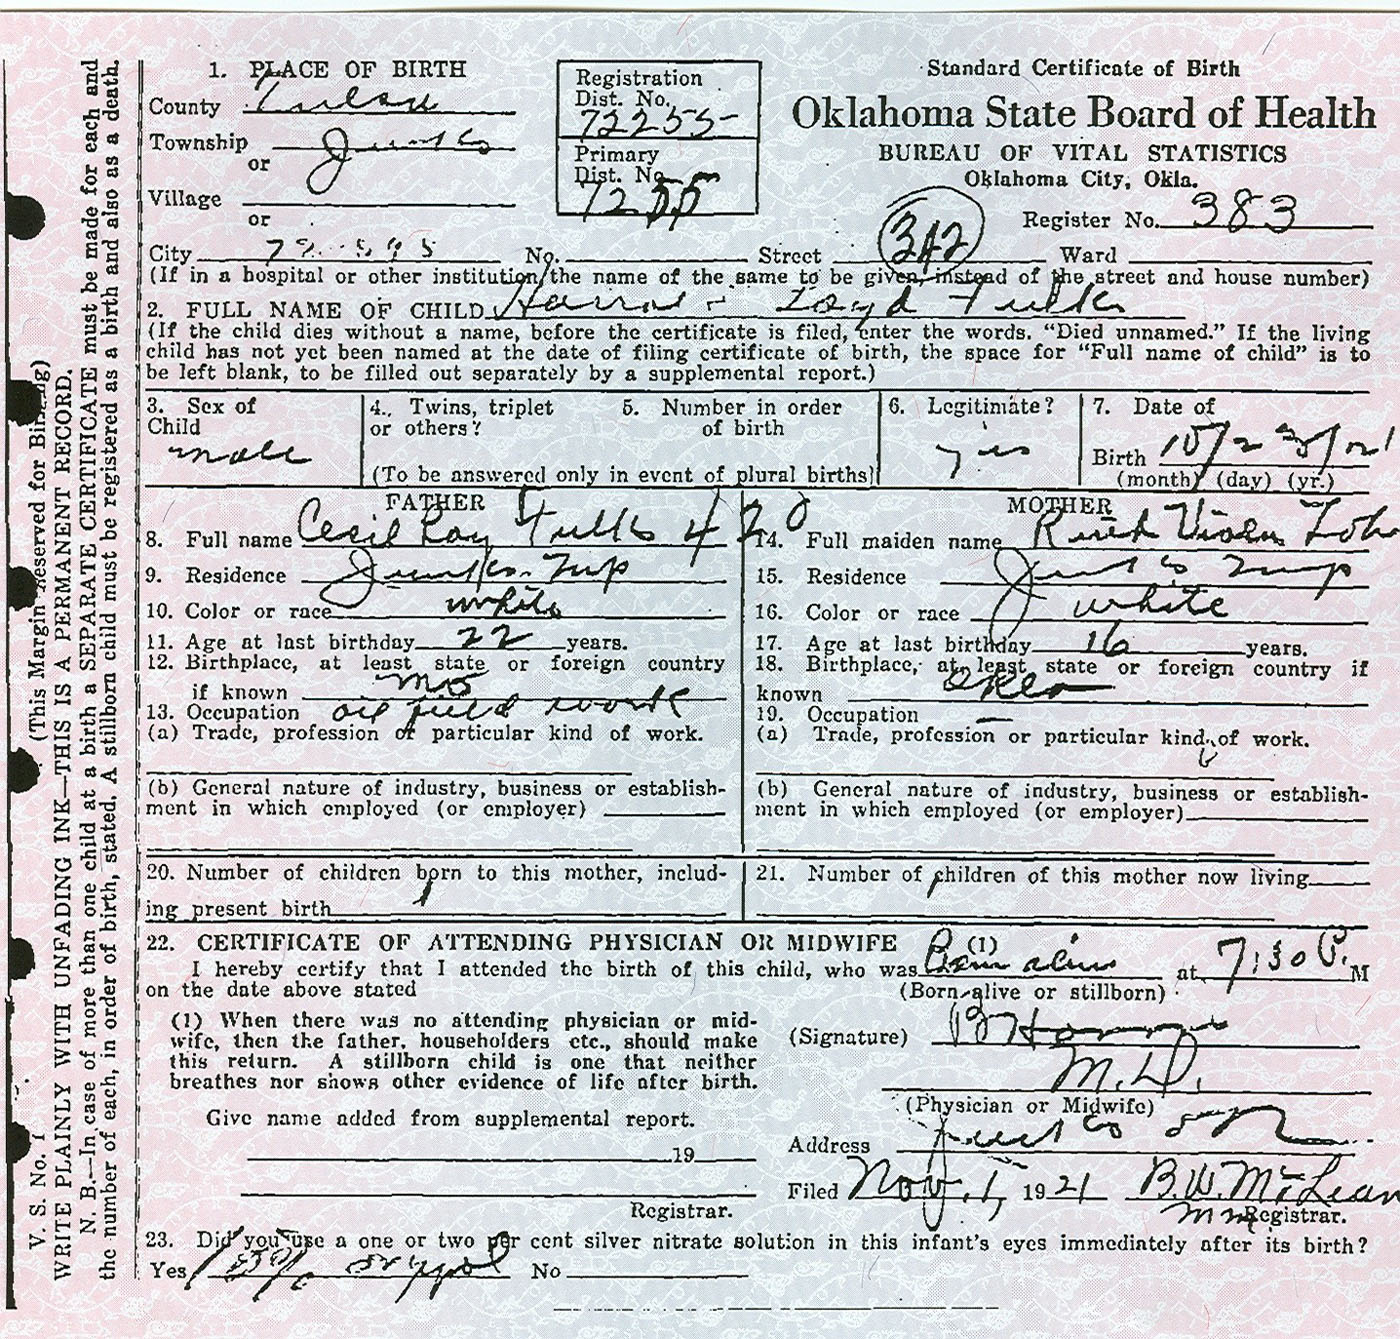 1. PLACE OF BIRTH
County Tulsa
Township Jenks
or
Village
or
City
Registration
Dist. No.
72255
Primary
Dist. No.
7255
Standard Certificate of Birth
Oklahoma State Board of Health
BUREAU OF VITAL STATISTICS
Oklahoma City, Okla.
Register No. 383
No. Street 342 Ward
(If in a hospital or other institution, the name of the same to be given, instead of the street and house number)
2. FULL NAME OF CHILD Loyd Fulks
(If the child dies without a name, before the certificate is filed, enter the words. “Died unnamed.” If the living
child has not yet been named at the date of filing certificate of birth, the space for “Full name of child” is to
be left blank, to be filled out separately by a supplemental report.)
3. Sex of
Child
male
4. Twins, triplet
or others?
5. Number in order
of birth
(To be answered only in event of plural births)
6. Legitimate?
yes
7. Date of
Birth 10/23/21
(month) (day) (yr.)
FATHER
8. Full name Cecil Ray Fulks
9. Residence Jenks Twp
10. Color or race white
11. Age at last birthday 22 years.
12. Birthplace, at least state or foreign country
if known Mo
13. Occupation oil field work
(a) Trade, profession or particular kind of work.
(b) General nature of industry, business or establish-
ment in which employed (or employer)
MOTHER
14. Full maiden name Viola
15. Residence Jenks Twp
16. Color or race white
17. Age at last birthday 16 years.
18. Birthplace, at least state or foreign country if
known Okla
19. Occupation —
(a) Trade, profession or particular kind of work.
(b) General nature of industry, business or establish-
ment in which employed (or employer)
20. Number of children born to this mother, includ-
ing present birth 1
21. Number of children of this mother now living 1
22. CERTIFICATE OF ATTENDING PHYSICIAN OR MIDWIFE (1)
I hereby certify that I attended the birth of this child, who was Born alive at 7:30 P. M
on the date above stated (Born alive or stillborn)
(1) When there was no attending physician or mid-
wife, then the father, householders etc., should make
this return. A stillborn child is one that neither
breathes nor shows other evidence of life after birth.
Give name added from supplemental report.
19
Registrar.
(Signature)
M.D.
(Physician or Midwife)
Address Jenks
Filed Nov. 1, 1921 B.W. McLean
Registrar.
23. Did you use a one or two per cent silver nitrate solution in this infant's eyes immediately after its birth?
Yes No
V. S. No. 1
(This Margin Reserved for Binding)
WRITE PLAINLY WITH UNFADING INK—THIS IS A PERMANENT RECORD.
N. B.—In case of more than one child at a birth a SEPARATE CERTIFICATE must be made for each and
the number of each, in order of birth, stated. A stillborn child must be registered as a birth and also as a death.